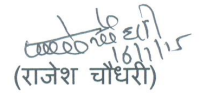 16/1/15
(राजेश चौधरी)